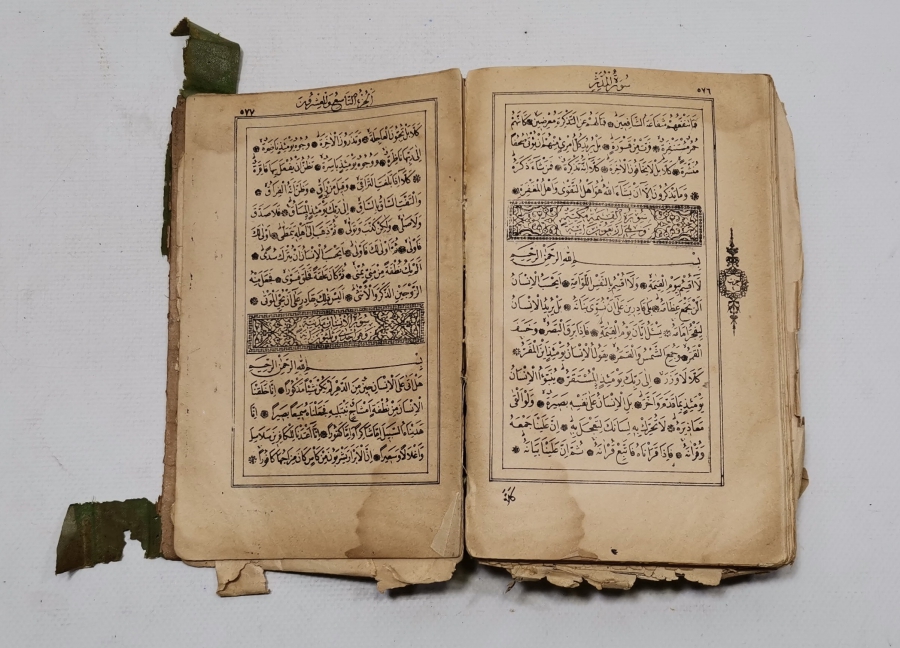 سورة المدثر ٥٧٦
فَمَا تَنْفَعُهُمْ شَفَاعَةُ الشَّافِعِينَ فَمَا لَهُمْ عَنِ التَّذْكِرَةِ مُعْرِضِينَ كَأَنَّهُمْ
حُمُرٌ مُسْتَنْفِرَةٌ فَرَّتْ مِنْ قَسْوَرَةٍ بَلْ يُرِيدُ كُلُّ امْرِئٍ مِنْهُمْ أَنْ يُؤْتَى صُحُفًا
مُنَشَّرَةً كَلَّا بَلْ لَا يَخَافُونَ الْآخِرَةَ كَلَّا إِنَّهُ تَذْكِرَةٌ فَمَنْ شَاءَ ذَكَرَهُ
وَمَا يَذْكُرُونَ إِلَّا أَنْ يَشَاءَ اللَّهُ هُوَ أَهْلُ التَّقْوَى وَأَهْلُ الْمَغْفِرَةِ
سورة القيمة مكية
وهي اربعون آية
بِسْمِ اللَّهِ الرَّحْمَنِ الرَّحِيمِ
لَا أُقْسِمُ بِيَوْمِ الْقِيمَةِ وَلَا أُقْسِمُ بِالنَّفْسِ اللَّوَّامَةِ أَيَحْسَبُ الْإِنْسَانُ
أَلَّنْ نَجْمَعَ عِظَامَهُ بَلَى قَادِرِينَ عَلَى أَنْ نُسَوِّيَ بَنَانَهُ بَلْ يُرِيدُ الْإِنْسَانُ
لِيَفْجُرَ أَمَامَهُ يَسْئَلُ أَيَّانَ يَوْمُ الْقِيمَةِ فَإِذَا بَرِقَ الْبَصَرُ وَخَسَفَ
الْقَمَرُ وَجُمِعَ الشَّمْسُ وَالْقَمَرُ يَقُولُ الْإِنْسَانُ يَوْمَئِذٍ أَيْنَ الْمَفَرُّ
كَلَّا لَا وَزَرَ إِلَى رَبِّكَ يَوْمَئِذٍ الْمُسْتَقَرُّ يُنَبَّؤُا الْإِنْسَانُ
يَوْمَئِذٍ بِمَا قَدَّمَ وَأَخَّرَ بَلِ الْإِنْسَانُ عَلَى نَفْسِهِ بَصِيرَةٌ وَلَوْ أَلْقَى
مَعَاذِيرَهُ لَا تُحَرِّكْ بِهِ لِسَانَكَ لِتَعْجَلَ بِهِ إِنَّ عَلَيْنَا جَمْعَهُ
وَقُرْآنَهُ فَإِذَا قَرَأْنَاهُ فَاتَّبِعْ قُرْآنَهُ ثُمَّ إِنَّ عَلَيْنَا بَيَانَهُ
كلا
الجزء التاسع والعشرون ٥٧٧
كَلَّا بَلْ تُحِبُّونَ الْعَاجِلَةَ وَتَذَرُونَ الْآخِرَةَ وُجُوهٌ يَوْمَئِذٍ نَاضِرَةٌ
إِلَى رَبِّهَا نَاظِرَةٌ وَوُجُوهٌ يَوْمَئِذٍ بَاسِرَةٌ تَظُنُّ أَنْ يُفْعَلَ بِهَا فَاقِرَةٌ
كَلَّا إِذَا بَلَغَتِ التَّرَاقِيَ وَقِيلَ مَنْ رَاقٍ وَظَنَّ أَنَّهُ الْفِرَاقُ
وَالْتَفَّتِ السَّاقُ بِالسَّاقِ إِلَى رَبِّكَ يَوْمَئِذٍ الْمَسَاقُ فَلَا صَدَّقَ
وَلَا صَلَّى وَلَكِنْ كَذَّبَ وَتَوَلَّى ثُمَّ ذَهَبَ إِلَى أَهْلِهِ يَتَمَطَّى أَوْلَى لَكَ
فَأَوْلَى ثُمَّ أَوْلَى لَكَ فَأَوْلَى أَيَحْسَبُ الْإِنْسَانُ أَنْ يُتْرَكَ سُدًى
أَلَمْ يَكُ نُطْفَةً مِنْ مَنِيٍّ يُمْنَى ثُمَّ كَانَ عَلَقَةً فَخَلَقَ فَسَوَّى فَجَعَلَ مِنْهُ
الزَّوْجَيْنِ الذَّكَرَ وَالْأُنْثَى أَلَيْسَ ذَلِكَ بِقَادِرٍ عَلَى أَنْ يُحْيِيَ الْمَوْتَى
سورة الانسان
وهي احدى وثلثون آية
بِسْمِ اللَّهِ الرَّحْمَنِ الرَّحِيمِ
هَلْ أَتَى عَلَى الْإِنْسَانِ حِينٌ مِنَ الدَّهْرِ لَمْ يَكُنْ شَيْئًا مَذْكُورًا إِنَّا خَلَقْنَا
الْإِنْسَانَ مِنْ نُطْفَةٍ أَمْشَاجٍ نَبْتَلِيهِ فَجَعَلْنَاهُ سَمِيعًا بَصِيرًا إِنَّا
هَدَيْنَاهُ السَّبِيلَ إِمَّا شَاكِرًا وَإِمَّا كَفُورًا إِنَّا أَعْتَدْنَا لِلْكَافِرِينَ سَلَاسِلَ
وَأَغْلَالًا وَسَعِيرًا إِنَّ الْأَبْرَارَ يَشْرَبُونَ مِنْ كَأْسٍ كَانَ مِزَاجُهَا كَافُورًا